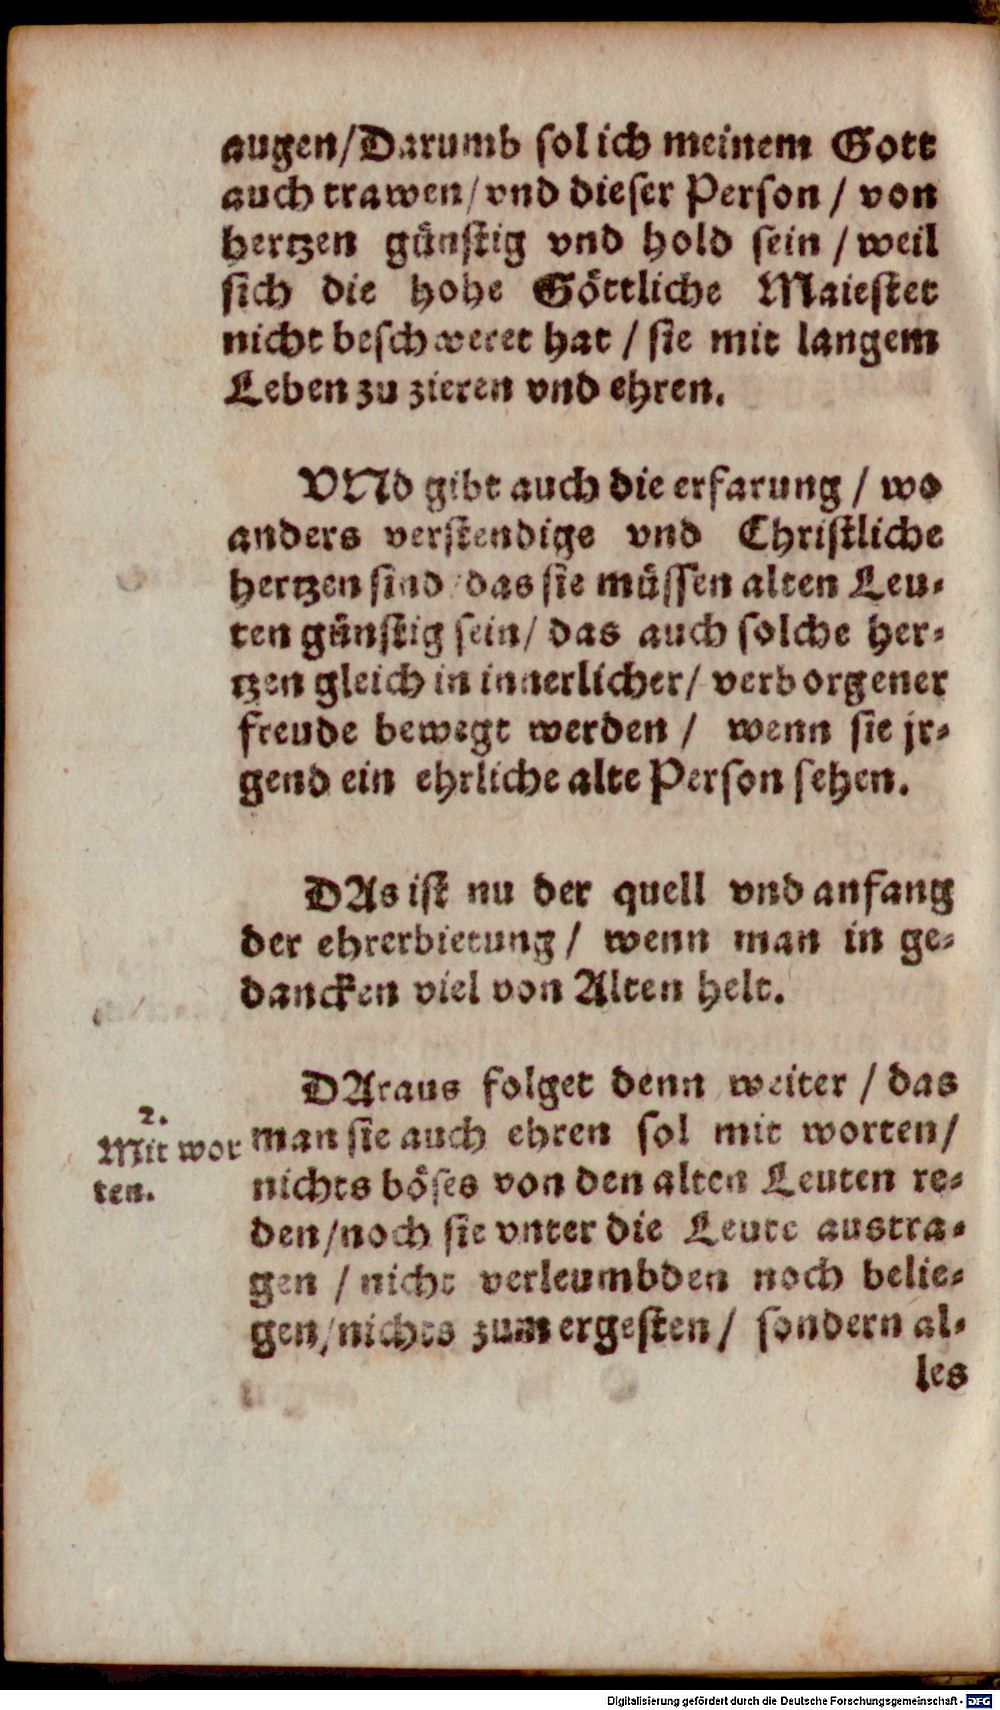 augen/Darumb sol ich meinem Gott
auch trawen/vnd dieser Person / von
hertzen günstig vnd hold sein / weil
sich die hohe Göttliche Maiestet
nicht beschweret hat / sie mit langem
Leben zu zieren vnd ehren.
VNd gibt auch die erfarung / wo
anders verstendige vnd Christliche
hertzen sind / das sie müssen alten Leu-
ten günstig sein/ das auch solche her-
tzen gleich in innerlicher/ verborgener
freude bewegt werden / wenn sie jr-
gend ein ehrliche alte Person sehen.
DAs ist nu der quell vnd anfang
der ehrerbietung / wenn man in ge-
dancken viel von Alten helt.
DAraus folget denn weiter / das
2.
Mit wor
ten.
man sie auch ehren sol mit worten/
nichts böses von den alten Leuten re-
den/noch sie vnter die Leute austra-
gen / nicht verleumbden noch belie-
gen/nichts zum ergesten / sondern al-
les
Digitalisierung gefördert durch die Deutsche Forschungsgemeinschaft - DFG